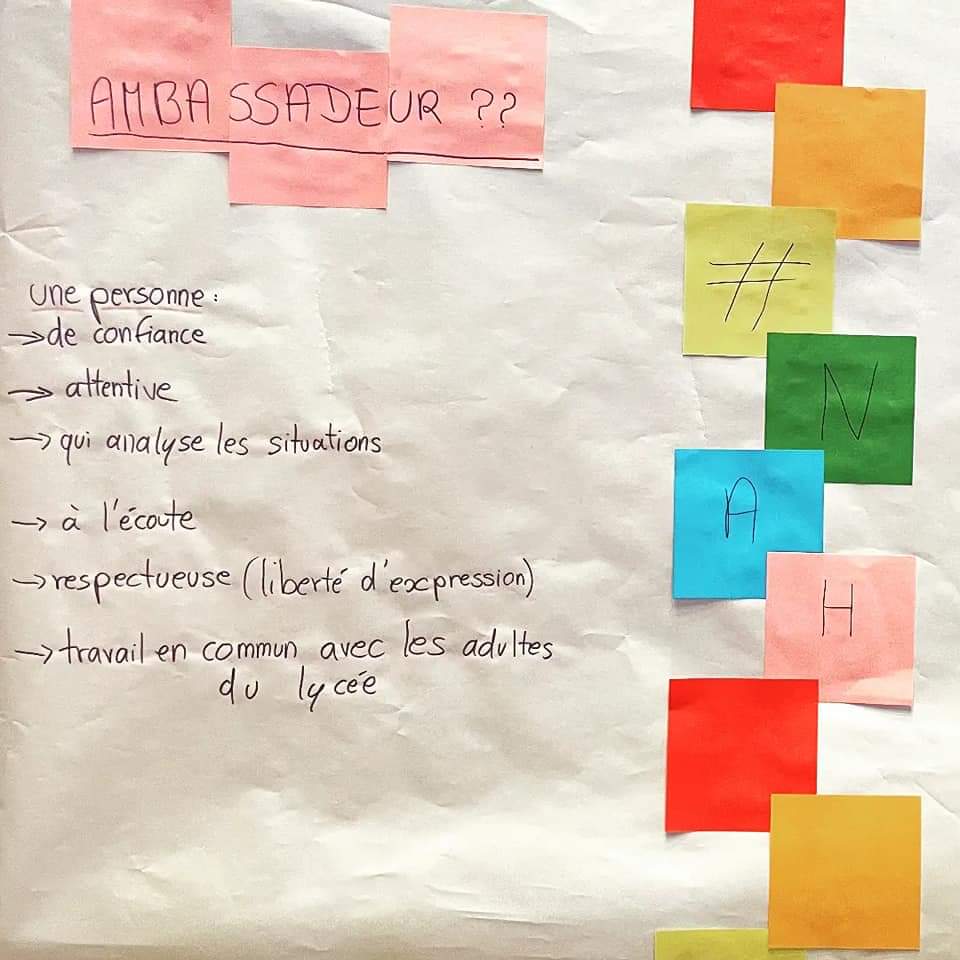 AMBASSADEUR ??
une personne :
→ de confiance
→ attentive
→ qui analyse les situations
→ à l'écoute
→ respectueuse (liberté d'expression)
→ travail en commun avec les adultes
du lycée
#
N
A
H